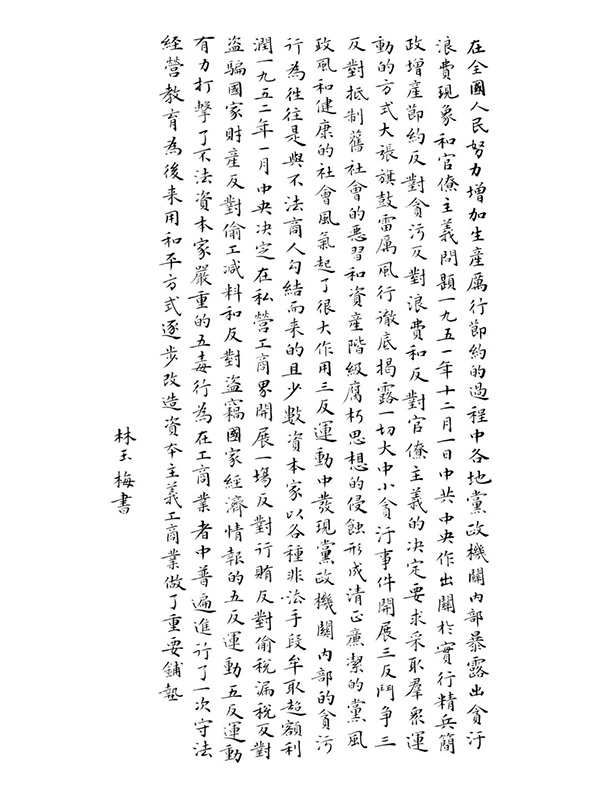 在全國人民努力增加生產厲行節約的過程中各地黨政機關內部暴露出貪汙
浪費現象和官僚主義問題一九五一年十二月一日中共中央作出關於實行精兵簡
政增產節約反對貪污反對浪費和反對官僚主義的決定要求采取羣眾運
動的方式大張旗鼓雷厲風行徹底揭露一切大中小貪汙事件開展三反鬥爭三
反對抵制舊社會的惡習和資產階級腐朽思想的侵蝕形成清正廉潔的黨風
政風和健康的社會風氣起了很大作用三反運動中發現黨政機關內部的貪污
行為往往是與不法商人勾結而来的且少數資本家以各種非法手段牟取超額利
潤一九五二年一月中央決定在私營工商界開展一場反對行賄反對偷稅漏稅反對
盜騙國家財產反對偷工減料和反對盜竊國家經濟情報的五反運動五反運動
有力打擊了不法資本家嚴重的五毒行為在工商業者中普遍進行了一次守法
經營教育為後来用和平方式逐步改造資本主義工商業做了重要鋪墊
林玉梅書